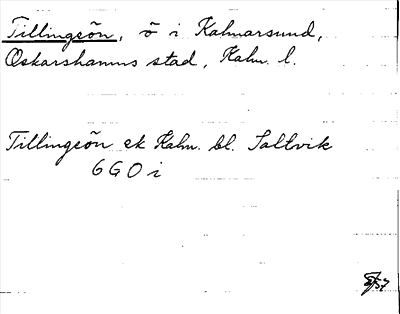 Tillingeön, ö i Kalmarsund,
Oskarshamns stad, Kalm. l.
Tillingeön ek Kalm. bl. Saltvik
6 G 0 i